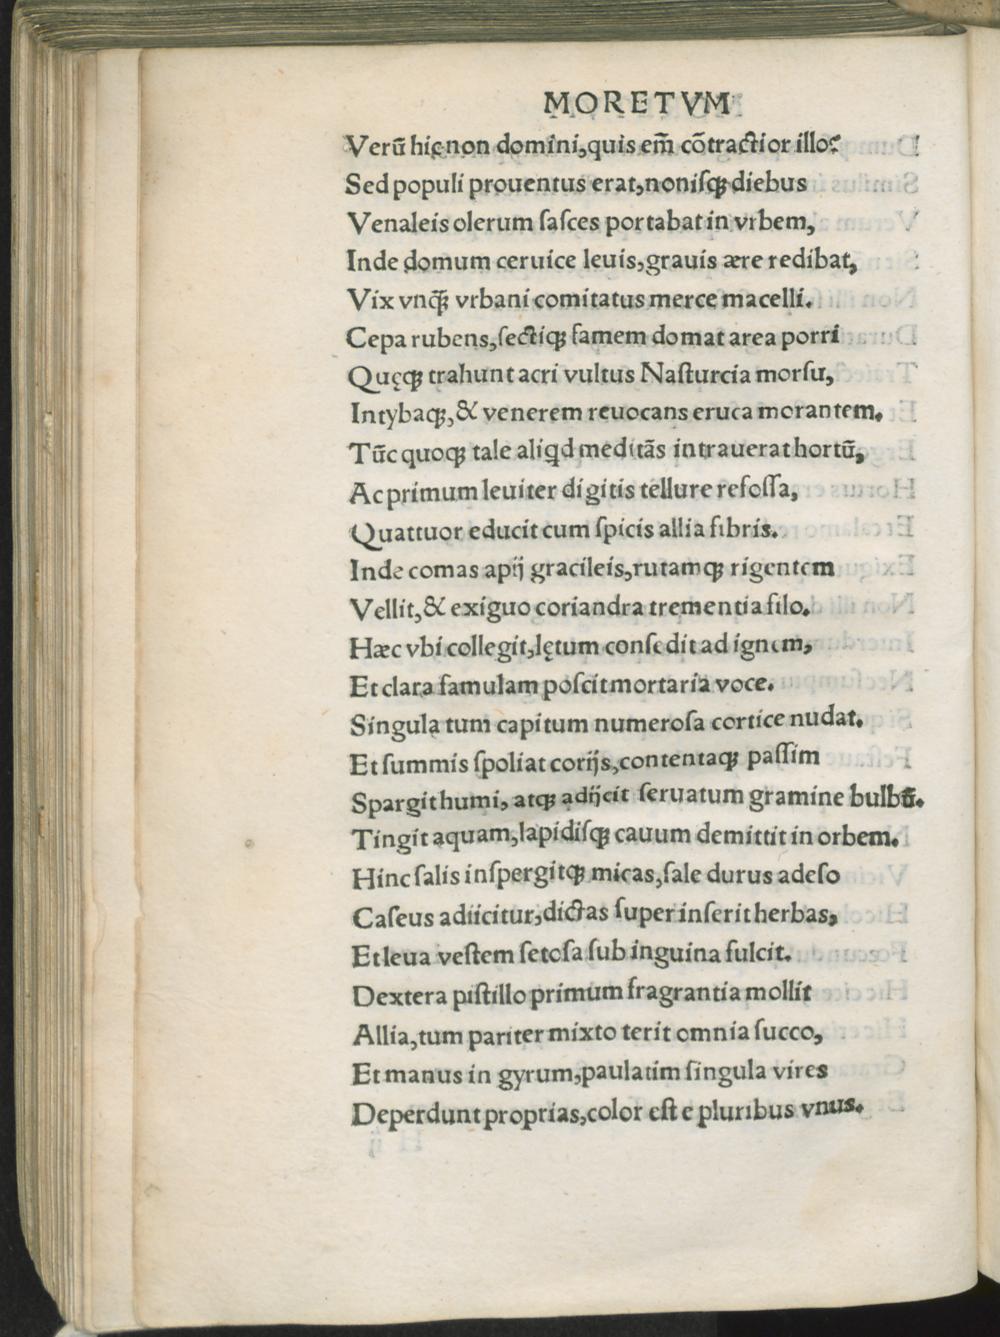 MORETVM
Verũ hic non domini,quis em̃ cõtractior illo?
Sed populi prouentus erat,nonisq; diebus
Venaleis olerum fasces portabat in vrbem,
Inde domum ceruice leuis,grauis ære redibat,
Vix vnq̃; vrbani comitatus merce macelli.
Cepa rubens,ſectiq; famem domat area porri
Quęq; trahunt acri vultus Naſturcia morſu,
Intybaq;,& venerem reuocans eruca morantem.
Tũc quoq; tale aliqd meditãs intrauerat hortũ,
Ac primum leuiter digitis tellure refoſſa,
Quattuor educit cum ſpicis allia fibris.
Inde comas apij gracileis,rutamq; rigentem
Vellit,& exiguo coriandra trementia filo.
Hæc vbi collegit,lętum conſedit ad ignem,
Et clara famulam poſcit mortaria voce.
Singula tum capitum numeroſa cortice nudat.
Et ſummis ſpoliat corijs,contentaq; paſſim
Spargit humi, atq; adijcit ſeruatum gramine bulbũ.
Tingit aquam,lapidiſq; cauum demittit in orbem.
Hinc ſalis inſpergitq; micas,ſale durus adeſo
Caſeus adiicitur,dictas ſuper inſerit herbas,
Et leua veſtem ſetoſa ſub inguina fulcit.
Dextera piſtillo primum fragrantia mollit
Allia,tum pariter mixto terit omnia ſucco,
Et manus in gyrum,paulatim ſingula vires
Deperdunt proprias,color eſt e pluribus vnus.